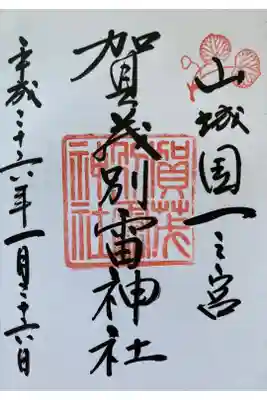 山城国一之宮
賀茂別雷神社
平成二十六年一月二十六日
賀茂
別雷
神社